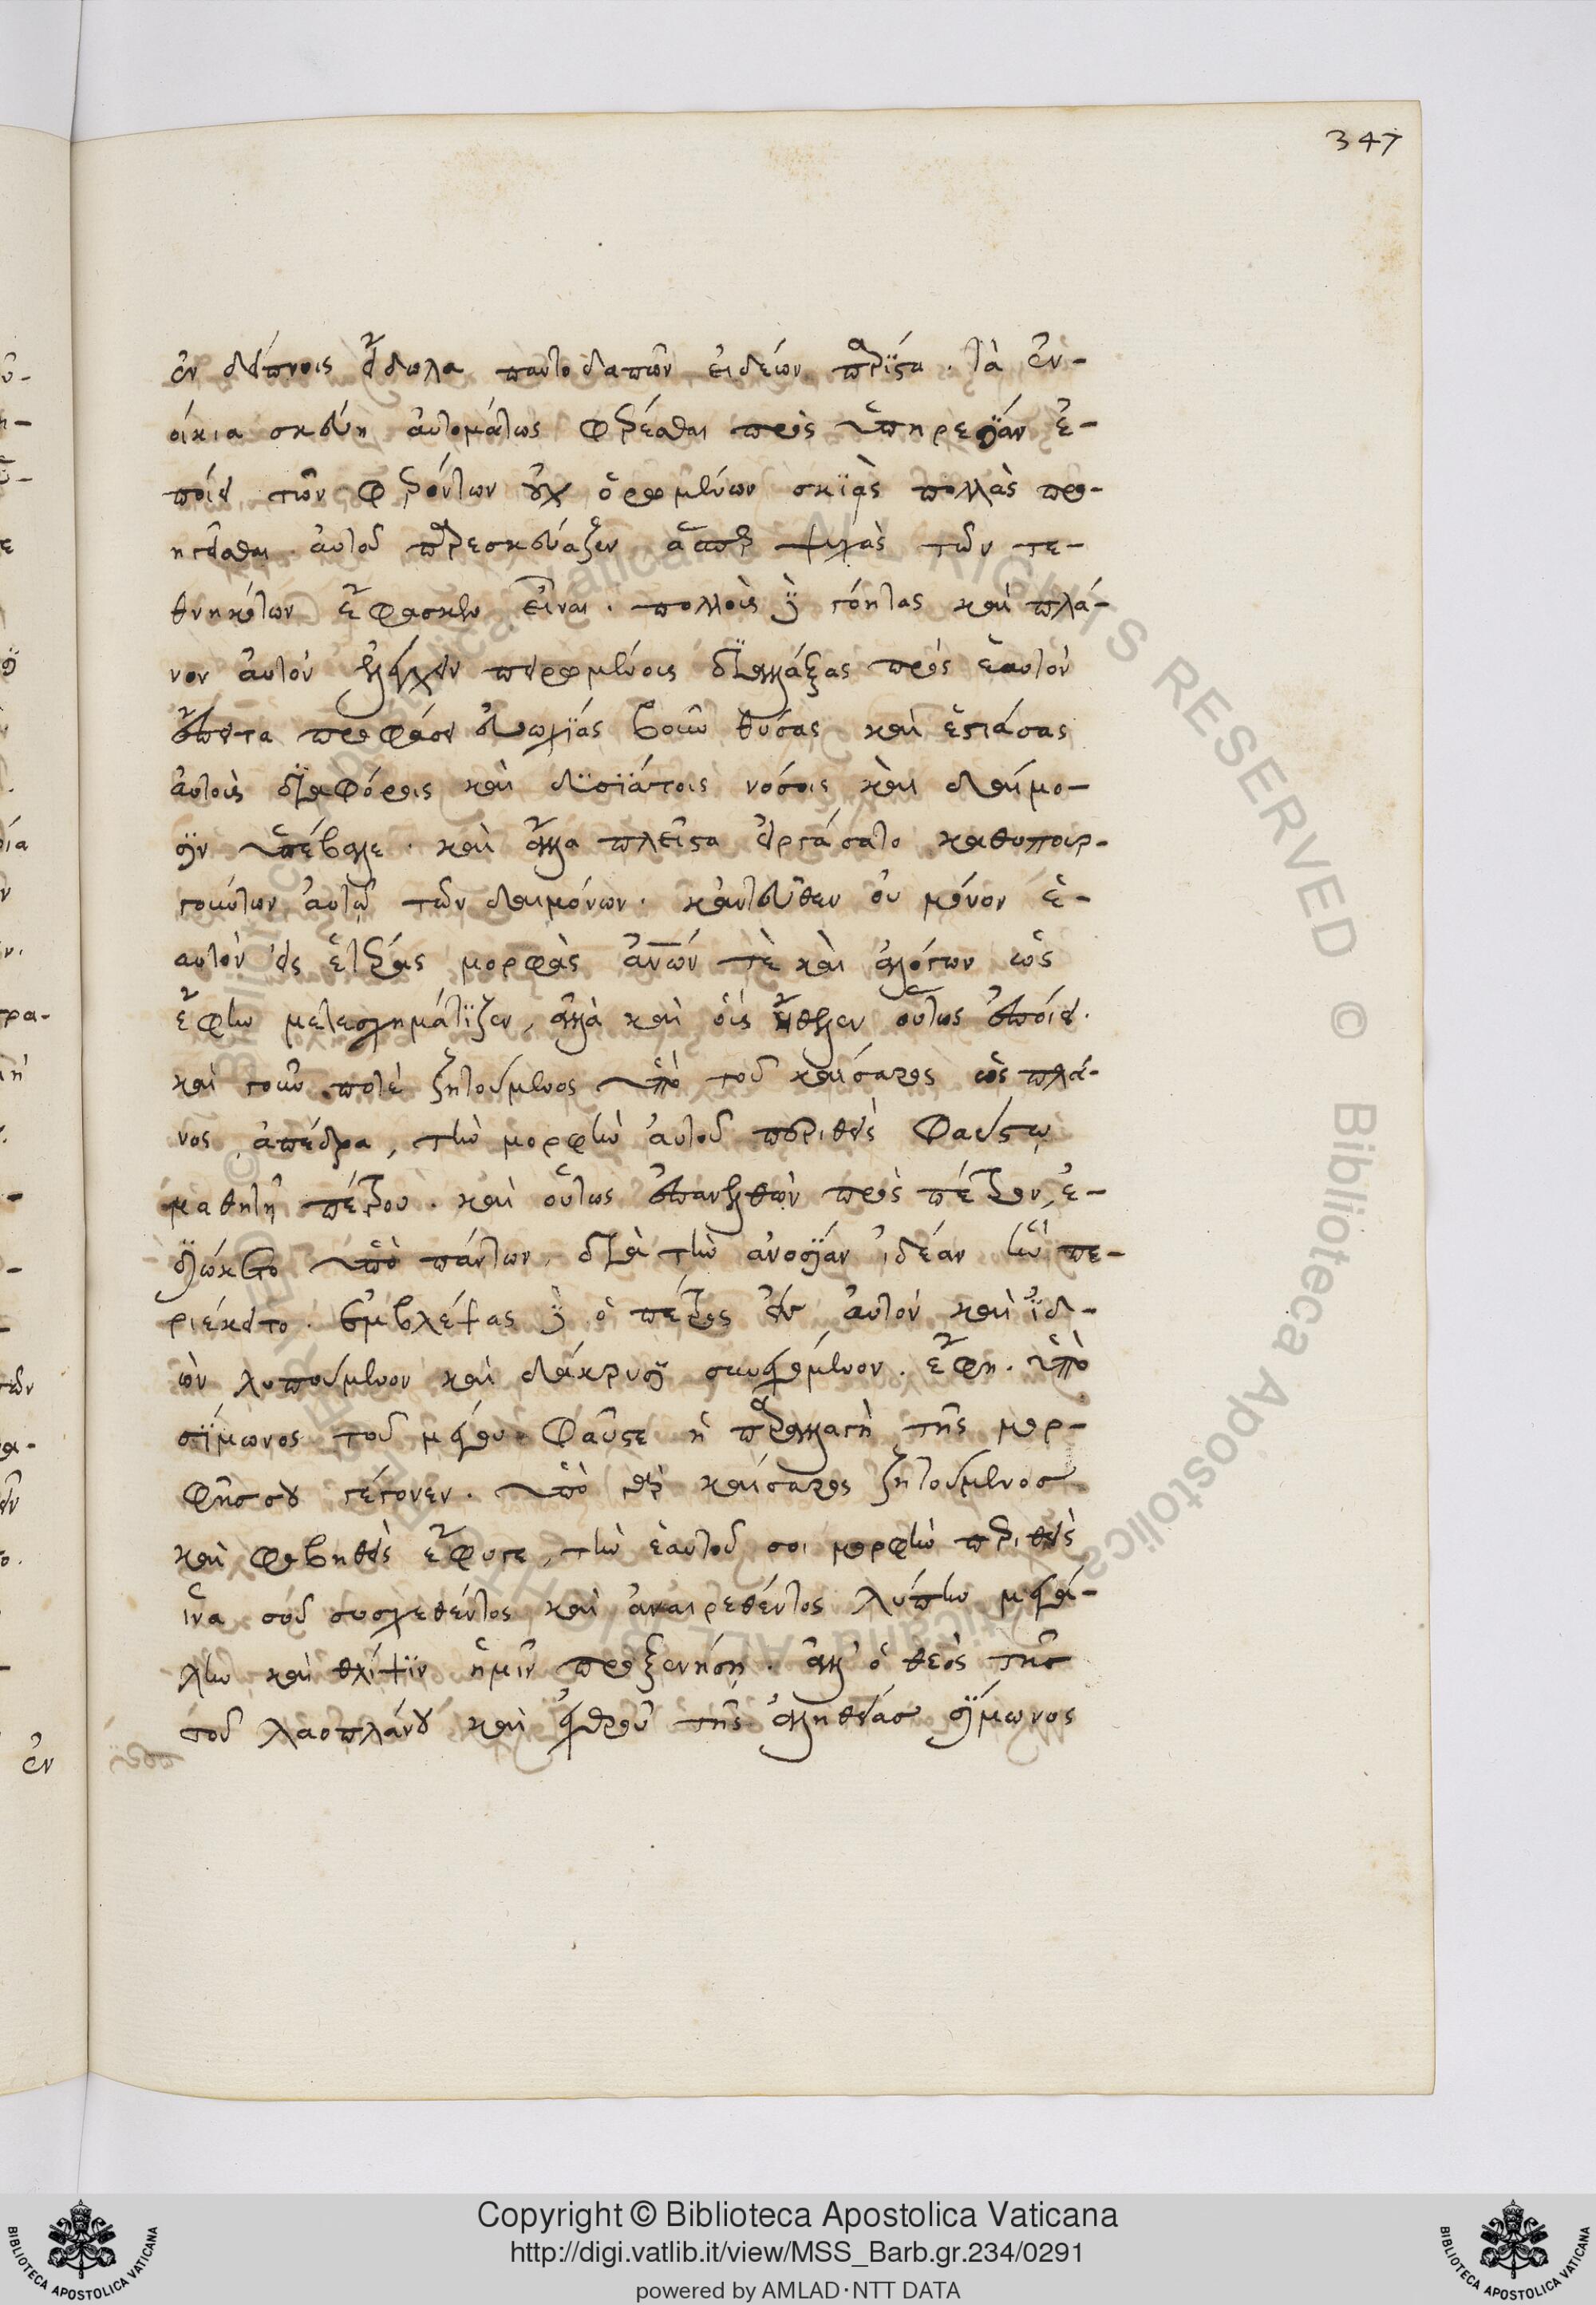 347
ἐν δείπνοις εἴδωλα παντοδαπῶν εἰδεῶν παρίστα. τὰ ἐν-
οίκια σκεύη αὐτομάτως φέρεσθαι πρὸς ὑπηρεσίαν ἐ-
ποίει τῶν φερόντων οὐχ ὁρωμένων σκιὰς πολλὰς προ-
ηγεῖσθαι αὐτοῦ παρεσκεύαζεν ἅσπερ ψυχὰς τῶν τε-
θνηκότων ἔφασκεν εἶναι. πολλοὺς δὲ γόητας καὶ πλά-
νον αὐτὸν ἐλέγχειν πειρωμένοις διαλλάξας πρὸς ἑαυτὸν
ἔπειτα προφάσει εὐωχίας βοῦν θύσας καὶ ἑστιάσας
αὐτοὺς διαφόροις καὶ δυσιάτοις νόσοις καὶ δαίμο-
σιν ὑπέβαλε. καὶ ἄλλα πλεῖστα εἰργάσατο καθυπουρ-
γούντων αὐτῷ τῶν δαιμόνων. κἀντεῦθεν οὐ μόνον ἑ-
αυτὸν εἰς ἑτέρας μορφὰς ἀνῶν τὲ καὶ ἀλόγων ὡς
ἔφην μετεσχημάτιζεν, ἀλλὰ καὶ οἷς ἤθελεν οὕτως ἐποίει.
καὶ γοῦν ποτὲ ζητούμενος ὑπὸ τοῦ καίσαρος ὡς πλά-
νος ἀπέδρα, τὴν μορφὴν αὐτοῦ περιθεὶς Φαύστῳ
μαθητῇ πέτρου. καὶ οὕτως ἐπανελθὼν πρὸς πέτρον, ἐ-
διώκετο ὑπὸ πάντων, διὰ τὴν ἀνοσίαν ἰδέαν ἣν πε-
ριέκειτο. ἐμβλέψας δὲ ὁ πέτρος εἰς αὐτὸν καὶ ἰδ-
ὼν λυπούμενον καὶ δάκρυσι συνεχόμενον. ἔφη. ὑπὸ
σίμωνος τοῦ μάγου Φαῦστε ἡ παραλλαγὴ τῆς μορ-
φῆς σου γέγονεν. ὑπὸ γὰρ καίσαρος ζητούμενος
καὶ φοβηθεὶς ἔφυγε, τὴν ἑαυτοῦ σοι μορφὴν περιθεὶς
ἵνα σοῦ συσχεθέντος καὶ ἀναιρεθέντος λύπην μεγά-
λην καὶ θλίψιν ἡμῖν προξενήσῃ. ἀλλ' ὁ θεὸς τῆς
τοῦ λαοπλάνου καὶ ἐχθροῦ τῆς ἀληθείας σίμωνος
ἐν
Copyright © Biblioteca Apostolica Vaticana
http://digi.vatlib.it/view/MSS_Barb.gr.234/0291
powered by AMLAD·NTT DATA